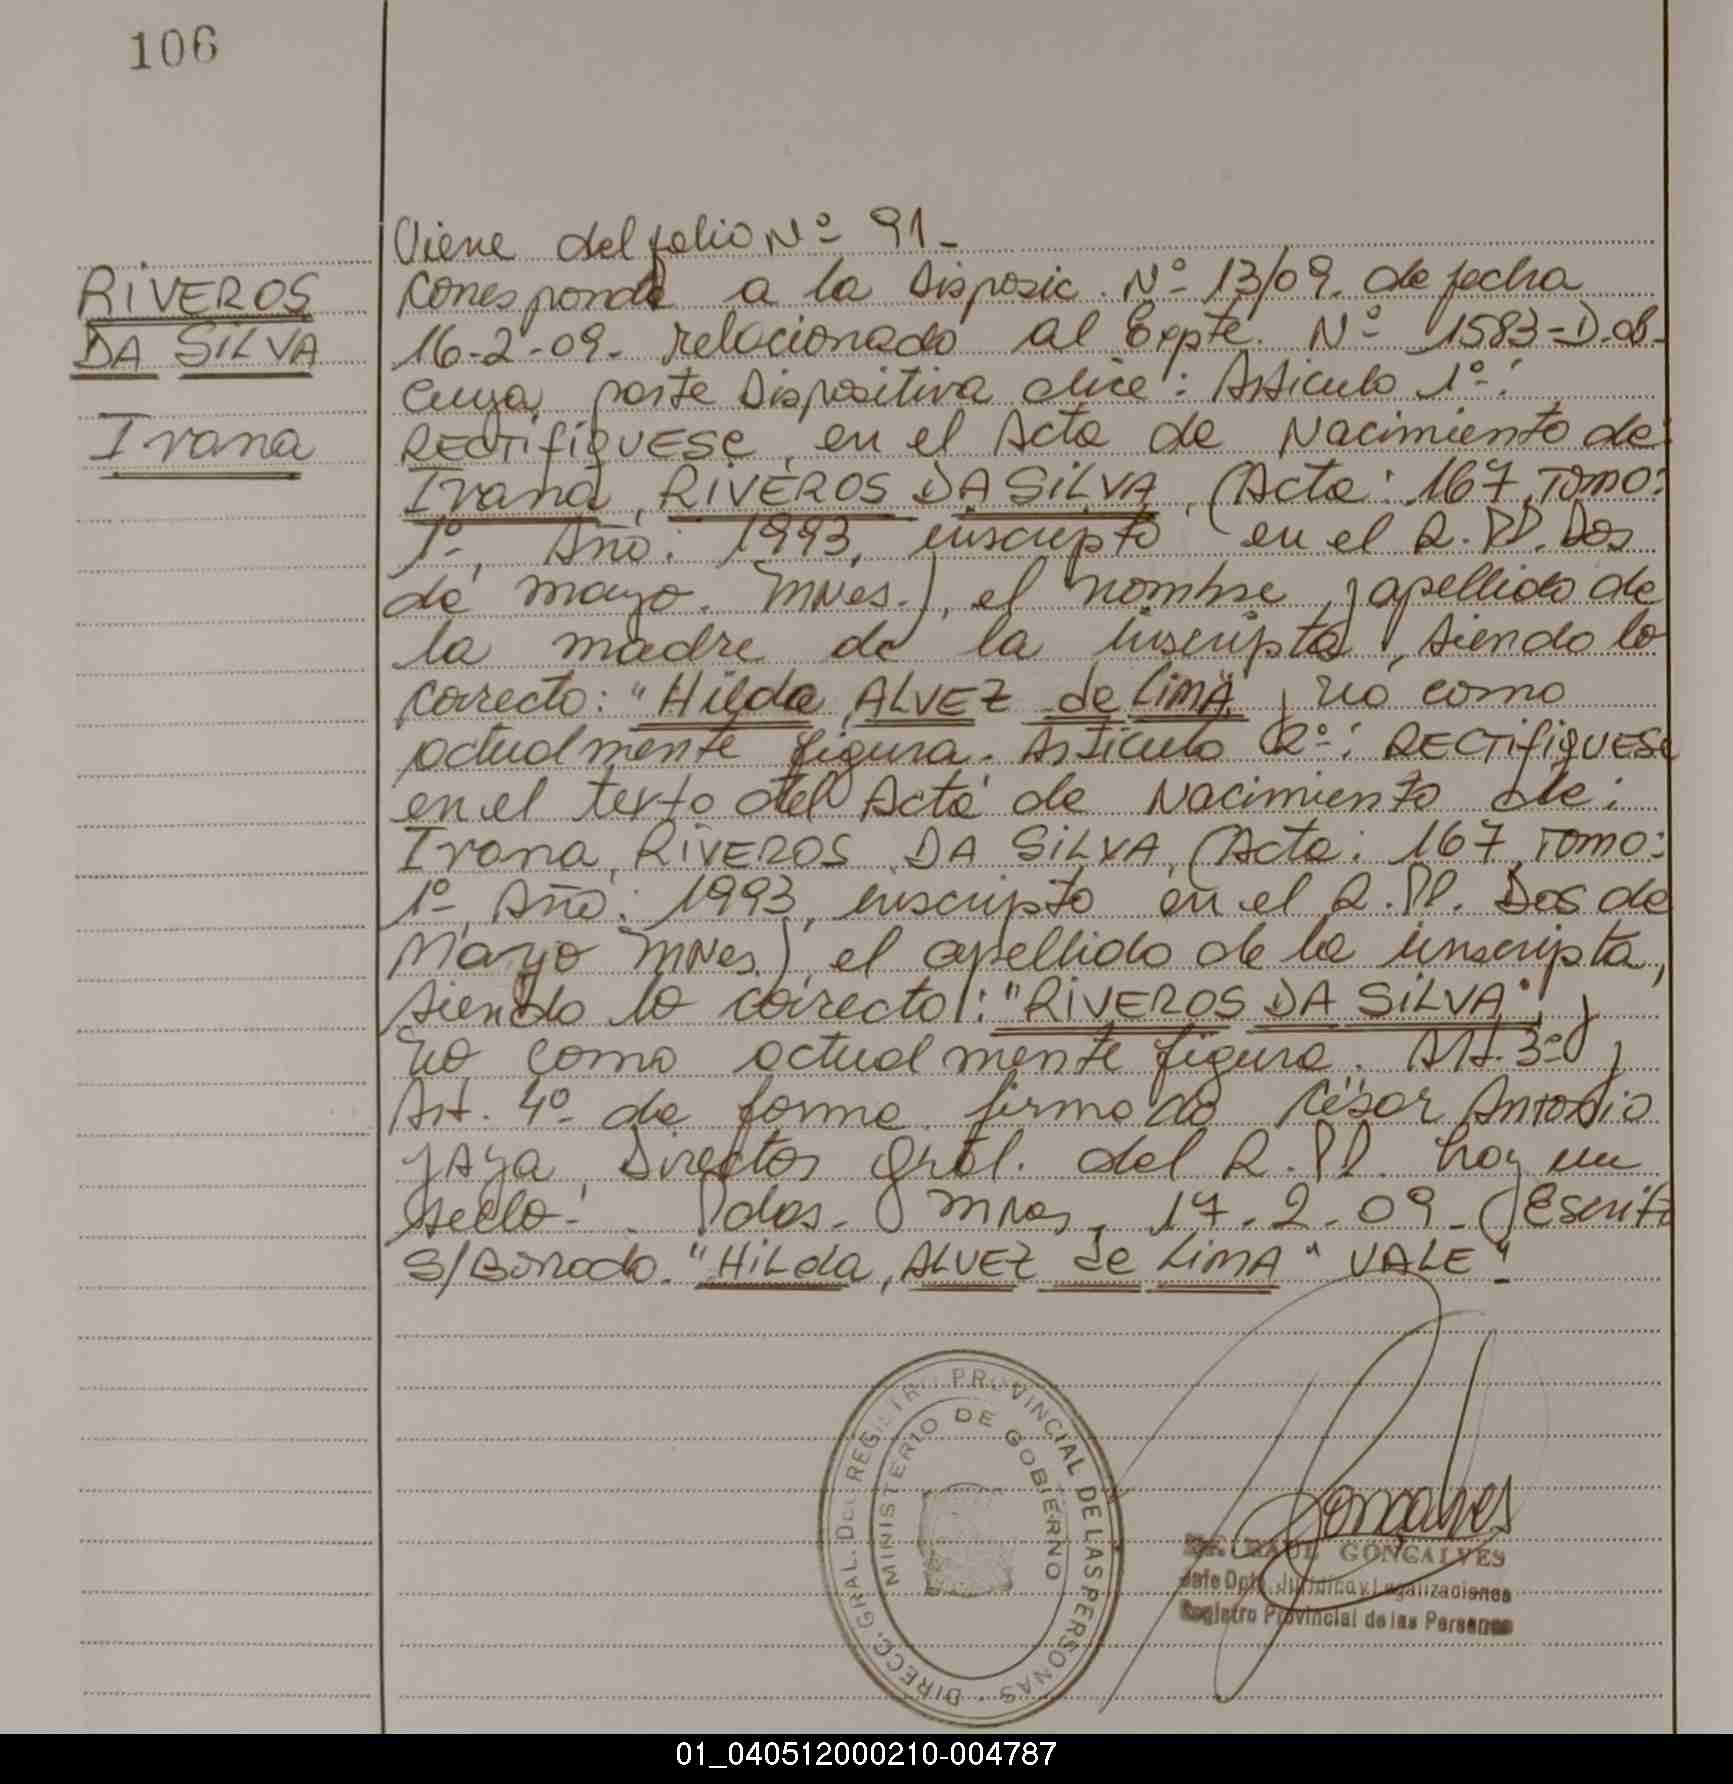 106
RIVEROS
DA SILVA
Ivana
Viene del folio Nº 91-
Corresponde a la Disposic. Nº 13/09. de fecha
16-2-09- relacionado al Expte. Nº 1583-D-08-
Cuya parte Dispositiva dice: Artículo 1º:
RECTIFIQUESE, en el Acta de Nacimiento de:
Ivana, RIVEROS DA SILVA, (Acta: 167, Tomo:
1º, Año: 1993, inscripto en el R.PP. Dos
de mayo. Mnes.), el nombre y apellido de
la madre de la inscripta, siendo lo
correcto: "Hilda, ALVEZ de LIMA" y no como
actualmente figura. Artículo 2º: RECTIFIQUESE
en el texto del Acta de Nacimiento de:
Ivana, RIVEROS DA SILVA, (Acta: 167, Tomo:
1º, Año: 1993, inscripto en el R.PP. Dos de
Mayo Mnes.) el apellido de la inscripta,
siendo lo correcto: "RIVEROS DA SILVA", y
no como actualmente figura. Art. 3º y
Art. 4º de forma. firmado César Antonio
Jaya, Director Gral. del R.PP. hay un
sello-. Pdas- Mnes, 17-2-09- (Escrito
S/Borrado. "Hilda, ALVEZ de LIMA" VALE"-
DIRECC. GRAL. DEL REGISTRO PROVINCIAL DE LAS PERSONAS
MINISTERIO DE GOBIERNO
Goncalves
RAUL GONCALVES
Jefe Dpto. Jurídico y Legalizaciones
Registro Provincial de las Personas
01_040512000210-004787